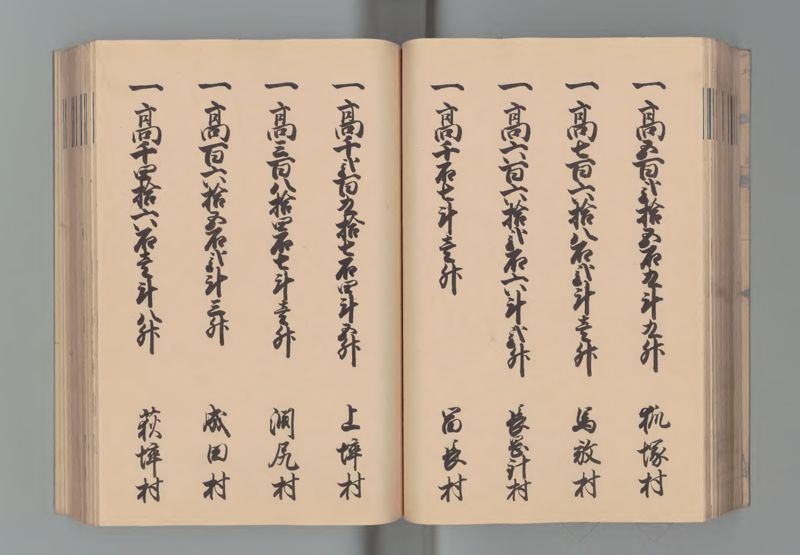 一高五百弐拾五石九斗九升 狐塚村
一高七百六拾八石弐斗壱升 馬数村
一高六百六拾弐石六斗弐升 村
一高千石七斗壱升 留長村
一高千弐百九拾七石四斗五升 上埣村
一高三百八拾四石七斗壱升 渕尻村
一高百六拾五石弐斗三升 成田村
一高千四拾六石壱斗八升 萩埣村